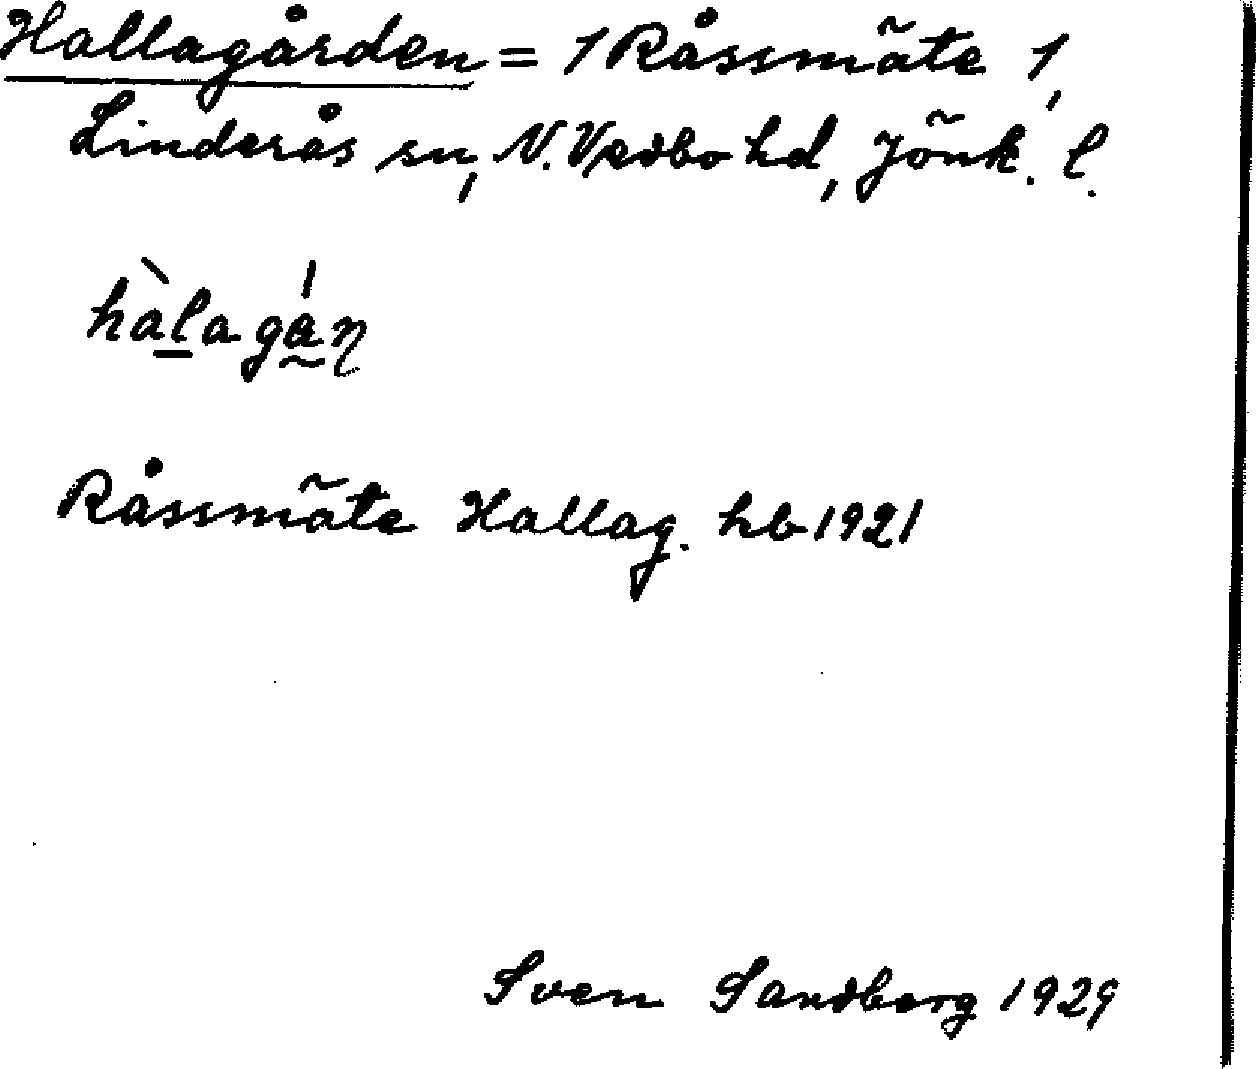 Hallagården = 1 Råssmäte 1,
Linderås sn, N. Vedbo hd, Jönk. l.
hàlagán
Råssmäte Hallag. hb 1921
Sven Sandberg 1929